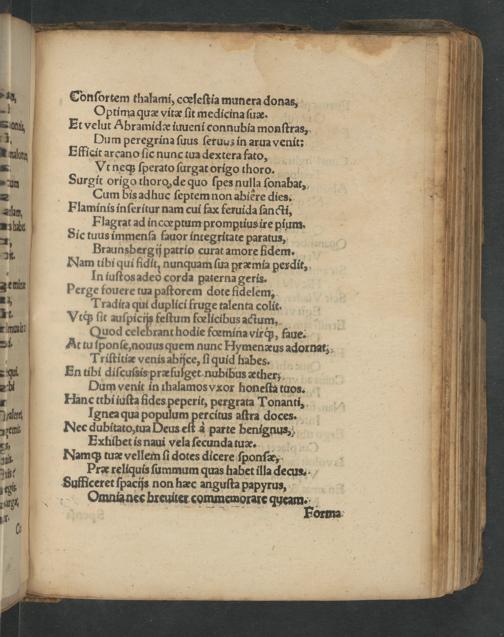 Consortem thalami, cœlestia munera donas,
Optima quæ vitæ sit medicina suæ.
Et velut Abramidæ iuueni connubia monstras,
Dum peregrina suus seruus in arua venit:
Efficit arcano sic nunc tua dextera fato,
Vt neqȝ sperato surgat origo thoro.
Surgit origo thoro, de quo spes nulla sonabat,
Cum bis adhuc septem non abiêre dies.
Flaminis inseritur nam cui fax feruida sancti,
Flagrat ad inceptum promptius ire pium.
Sic tuus immensa fauor integritate paratus,
Braunsbergij patrio curat amore fidem.
Nam tibi qui fidit, nunquam sua præmia perdit,
In iustos adeò corda paterna geris.
Perge fouere tua pastorem dote fidelem,
Tradita qui duplici fruge talenta colit.
Vtqȝ sit auspicijs festum fœlicibus actum,
Quod celebrant hodie fœmina virqȝ, faue.
At tu sponse, nouus quem nunc Hymenæus adornat,
Tristitiæ venis abijce, si quid habes.
En tibi discussis præfulget nubibus æther,
Dum venit in thalamos vxor honesta tuos.
Hanc tibi iusta fides peperit, pergrata Tonanti,
Ignea qua populum percitus astra doces.
Nec dubitato, tua Deus est à parte benignus,
Exhibet is naui vela secunda tuæ.
Namqȝ tuæ vellem si dotes dicere sponsæ,
Præ reliquis summum quas habet illa decus.
Sufficeret spacijs non hæc angusta papyrus,
Omnia nec breuiter commemorare queam.
Forma